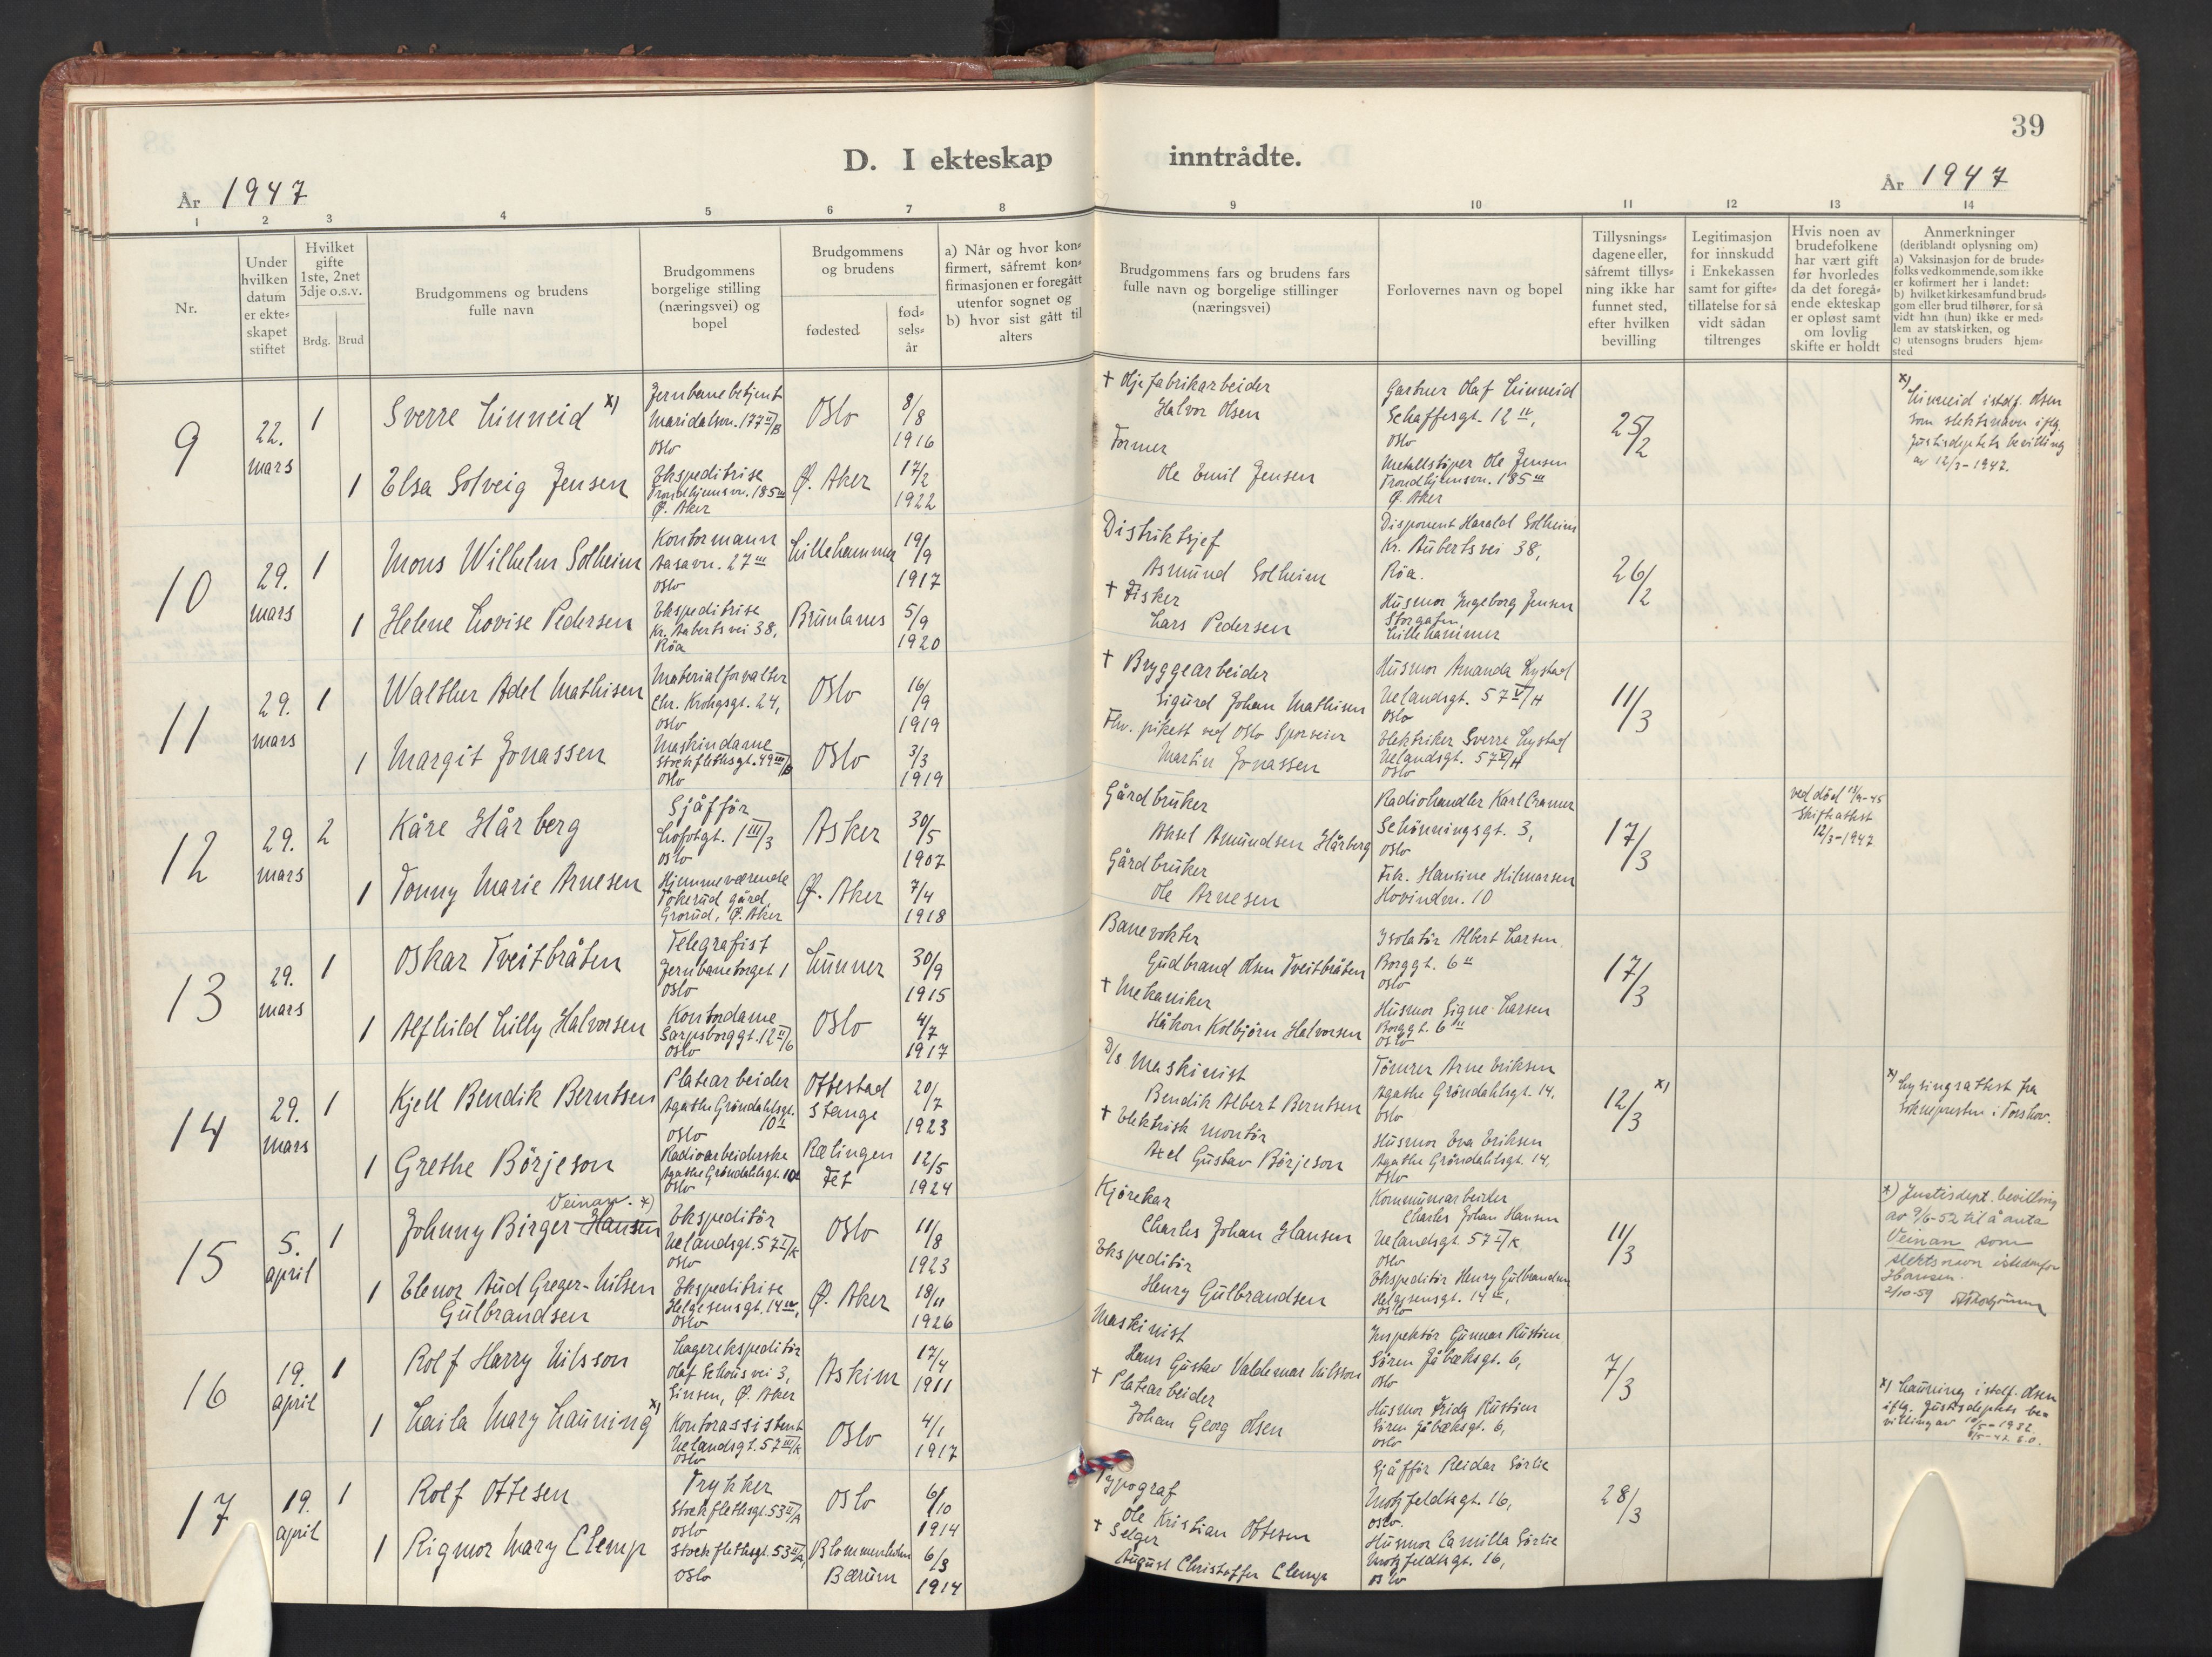 39
D. I ekteskap inntrådte.
År 1947
År 1947
1 2 3 4 5 6 7 8 9 10 11 12 13 14
Nr.
Under hvilken datum er ekte-skapet stiftet
Hvilket gifte 1ste, 2net 3dje o.s.v.
Brdg. Brud
Brudgommens og brudens fulle navn
Brudgommens borgelige stilling (næringsvei) og bopel
Brudgommens og brudens
fødested
fød-sels-år
a) Når og hvor kon-firmert, såfremt kon-firmasjonen er foregått utenfor sognet og
b) hvor sist gått til alters
Brudgommens fars og brudens fars fulle navn og borgelige stillinger (næringsvei)
Forlovernes navn og bopel
Tillysnings-dagene eller, såfremt tillys-ning ikke har funnet sted, efter hvilken bevilling
Legitimasjon for innskudd i Enkekassen samt for gifte-tillatelse for så vidt sådan tiltrenges
Hvis noen av brudefolkene har vært gift før hvorledes da det foregå-ende ekteskap er opløst samt om lovlig skifte er holdt
Anmerkninger
(deriblandt oplysning om)
a) Vaksinasjon for de brude-folks vedkommende, som ikke er kofirmert her i landet:
b) hvilket kirkesamfund brud-gom eller brud tilhører, for så vidt han (hun) ikke er med-lem av statskirken, og
c) utensogns bruders hjem-sted
9
22. mars
1
Sverre Linneid x)
Jernbanebetjent
Maridalsvn. 177 II/B
Oslo
Oslo
8/8 1916
† Oljefabrikarbeider
Halvor Olsen
Gartner Olaf Linneid
Schaffesgt. 12 IV,
Oslo
25/2
x) Linneid istdf. Olsen
som slektsnavn iflg.
Justisdeptets bevilling
av 12/3-1947.
1
Elsa Solveig Jensen
Ekspeditrise
Trondhjemsvn. 185 III
Ø. Aker
Ø. Aker
17/2 1922
Former
Ole Emil Jensen
Metallstøper Ole Jensen
Trondhjemsvn. 185 III
Ø. Aker
10
29. mars
1
Mons Wilhelm Solheim
Kontormann
Aasavn. 27 III
Oslo
Lillehammer
19/9 1917
Distriktsjef
Asmund Solheim
Disponent Harald Solheim
Kr. Auberts vei 38,
Røa.
26/2
1
Helene Lovise Pedersen
Ekspeditrise
Kr. Auberts vei 38,
Røa
Brunlanes
5/9 1920
† Fisker
Lars Pedersen
Husmor Ingeborg Jensen
Storgaten,
Lillehammer
11
29. mars
1
Walther Adel Mathisen
Materialforvalter
Chr. Krohgsgt. 24,
Oslo
Oslo
16/9 1919
† Bryggearbeider
Sigurd Johan Mathisen
Husmor Amanda Lystad
Uelandsgt. 57 V/H
Oslo
11/3
1
Margit Jonassen
Maskindame
Stockflethsgt. 49 III/B
Oslo
Oslo
3/3 1919
Fhv. pikett ved Oslo Sporveier
Martin Jonassen
Elektriker Sverre Lystad
Uelandsgt. 57 V/H
Oslo
12
29. mars
2
Kåre Hårberg
Sjåffør
Lofotgt. 1 III/3
Oslo
Asker
30/5 1907
Gårdbruker
Aksel Amundsen Hårberg
Radiohandler Karl Cramer
Schønningsgt. 3,
Oslo
17/3
ved død -45
Skifteattest
12/3-1947
1
Tonny Marie Arnesen
Hjemmeværende
Tokerud gård,
Grorud, Ø. Aker
Ø. Aker
7/4 1918
Gårdbruker
Ole Arnesen
Frk. Hansine Hilmarsen
Hovindvn. 10
13
29. mars
1
Oskar Tveitbråten
Telegrafist
Jernbanetorget 1
Oslo
Lunner
30/9 1915
Banevokter
Gudbrand Olsen Tveitbråten
Isolatør Albert Larsen.
Borggt. 6 II
Oslo
17/3
1
Alfhild Lilly Halvorsen
Kontordame
Sarpsborggt. 12 II/6
Oslo
Oslo
4/7 1917
† Mekaniker
Håkon Kolbjørn Halvorsen
Husmor Signe Larsen
Borggt. 6 II
Oslo
14
29. mars
1
Kjell Bendik Berntsen
Platearbeider
Agathe Grøndahlsgt. 10
Oslo
Ottestad
Stange
20/7 1923
D/S Maskinist
Bendik Albert Berntsen
Tømrer Arne Eriksen
Agathe Grøndahlsgt. 14,
Oslo
12/3 x)
x) Lysingsattest fra
Soknepresten i Torshov.
1
Grethe Börjeson
Radioarbeiderske
Agathe Grøndahlsgt. 10
Oslo
Rælingen
Fet
12/5 1924
† Elektrisk montør
Axel Gustav Börjeson
Husmor Eva Eriksen
Agathe Grøndahlsgt. 14,
Oslo
15
5. april
1
Veinan. x)
Johnny Birger Hansen
Ekspeditør
Uelandsgt. 57 I/K
Oslo
Oslo
11/8 1923
Kjørekar
Charles Johan Hansen
Kommunearbeider
Charles Johan Hansen
Uelandsgt. 57 I/K
Oslo
11/3
x) Justisdept. bevilling
av 9/6-52 til å anta
Veinan som
slektsnavn istedenfor
Hansen.
2/10-59
1
Elenor Aud Greger-Nilsen
Gulbrandsen
Ekspeditrise
Helgesensgt. 14 IV,
Oslo
Ø. Aker
18/11 1926
Ekspeditør
Henry Gulbrandsen
Ekspeditør Henry Gulbrandsen
Helgesensgt. 14 IV,
Oslo
16
19. april
1
Rolf Harry Nilsson
Lagerekspeditør
Olaf Schous vei 3,
Sinsen, Ø. Aker
Askim
17/4 1911
Maskinist
Hans Gustav Valdemar Nilsson
Inspektør Gunnar Rustien
Søren Jåbæksgt. 6,
Oslo
7/3
1
Laila Mary Launing x)
Kontorassistent
Uelandsgt. 57 III/K
Oslo
Oslo
4/1 1917
† Platearbeider
Johan Georg Olsen
Husmor Frida Rustien
Søren Jåbæksgt. 6,
Oslo
x) Launing istdf. Olsen
iflg. Justisdeptets be-
villing av 10/5-1932
17
19. april
1
Rolf Ottesen
Trykker
Stockflethsgt. 53 II/A
Oslo
Oslo
6/10 1914
Typograf
Ole Kristian Ottesen
Sjåffør Reidar Sørlie
Motzfeldtsgt. 16,
Oslo.
28/3
1
Rigmor Mary Clemp
Stockflethsgt. 53 II/A
Oslo
Blommenholm
Bærum
6/3 1914
† Selger
August Christoffer Clemp
Husmor Camilla Sørlie
Motzfeldtsgt. 16,
Oslo